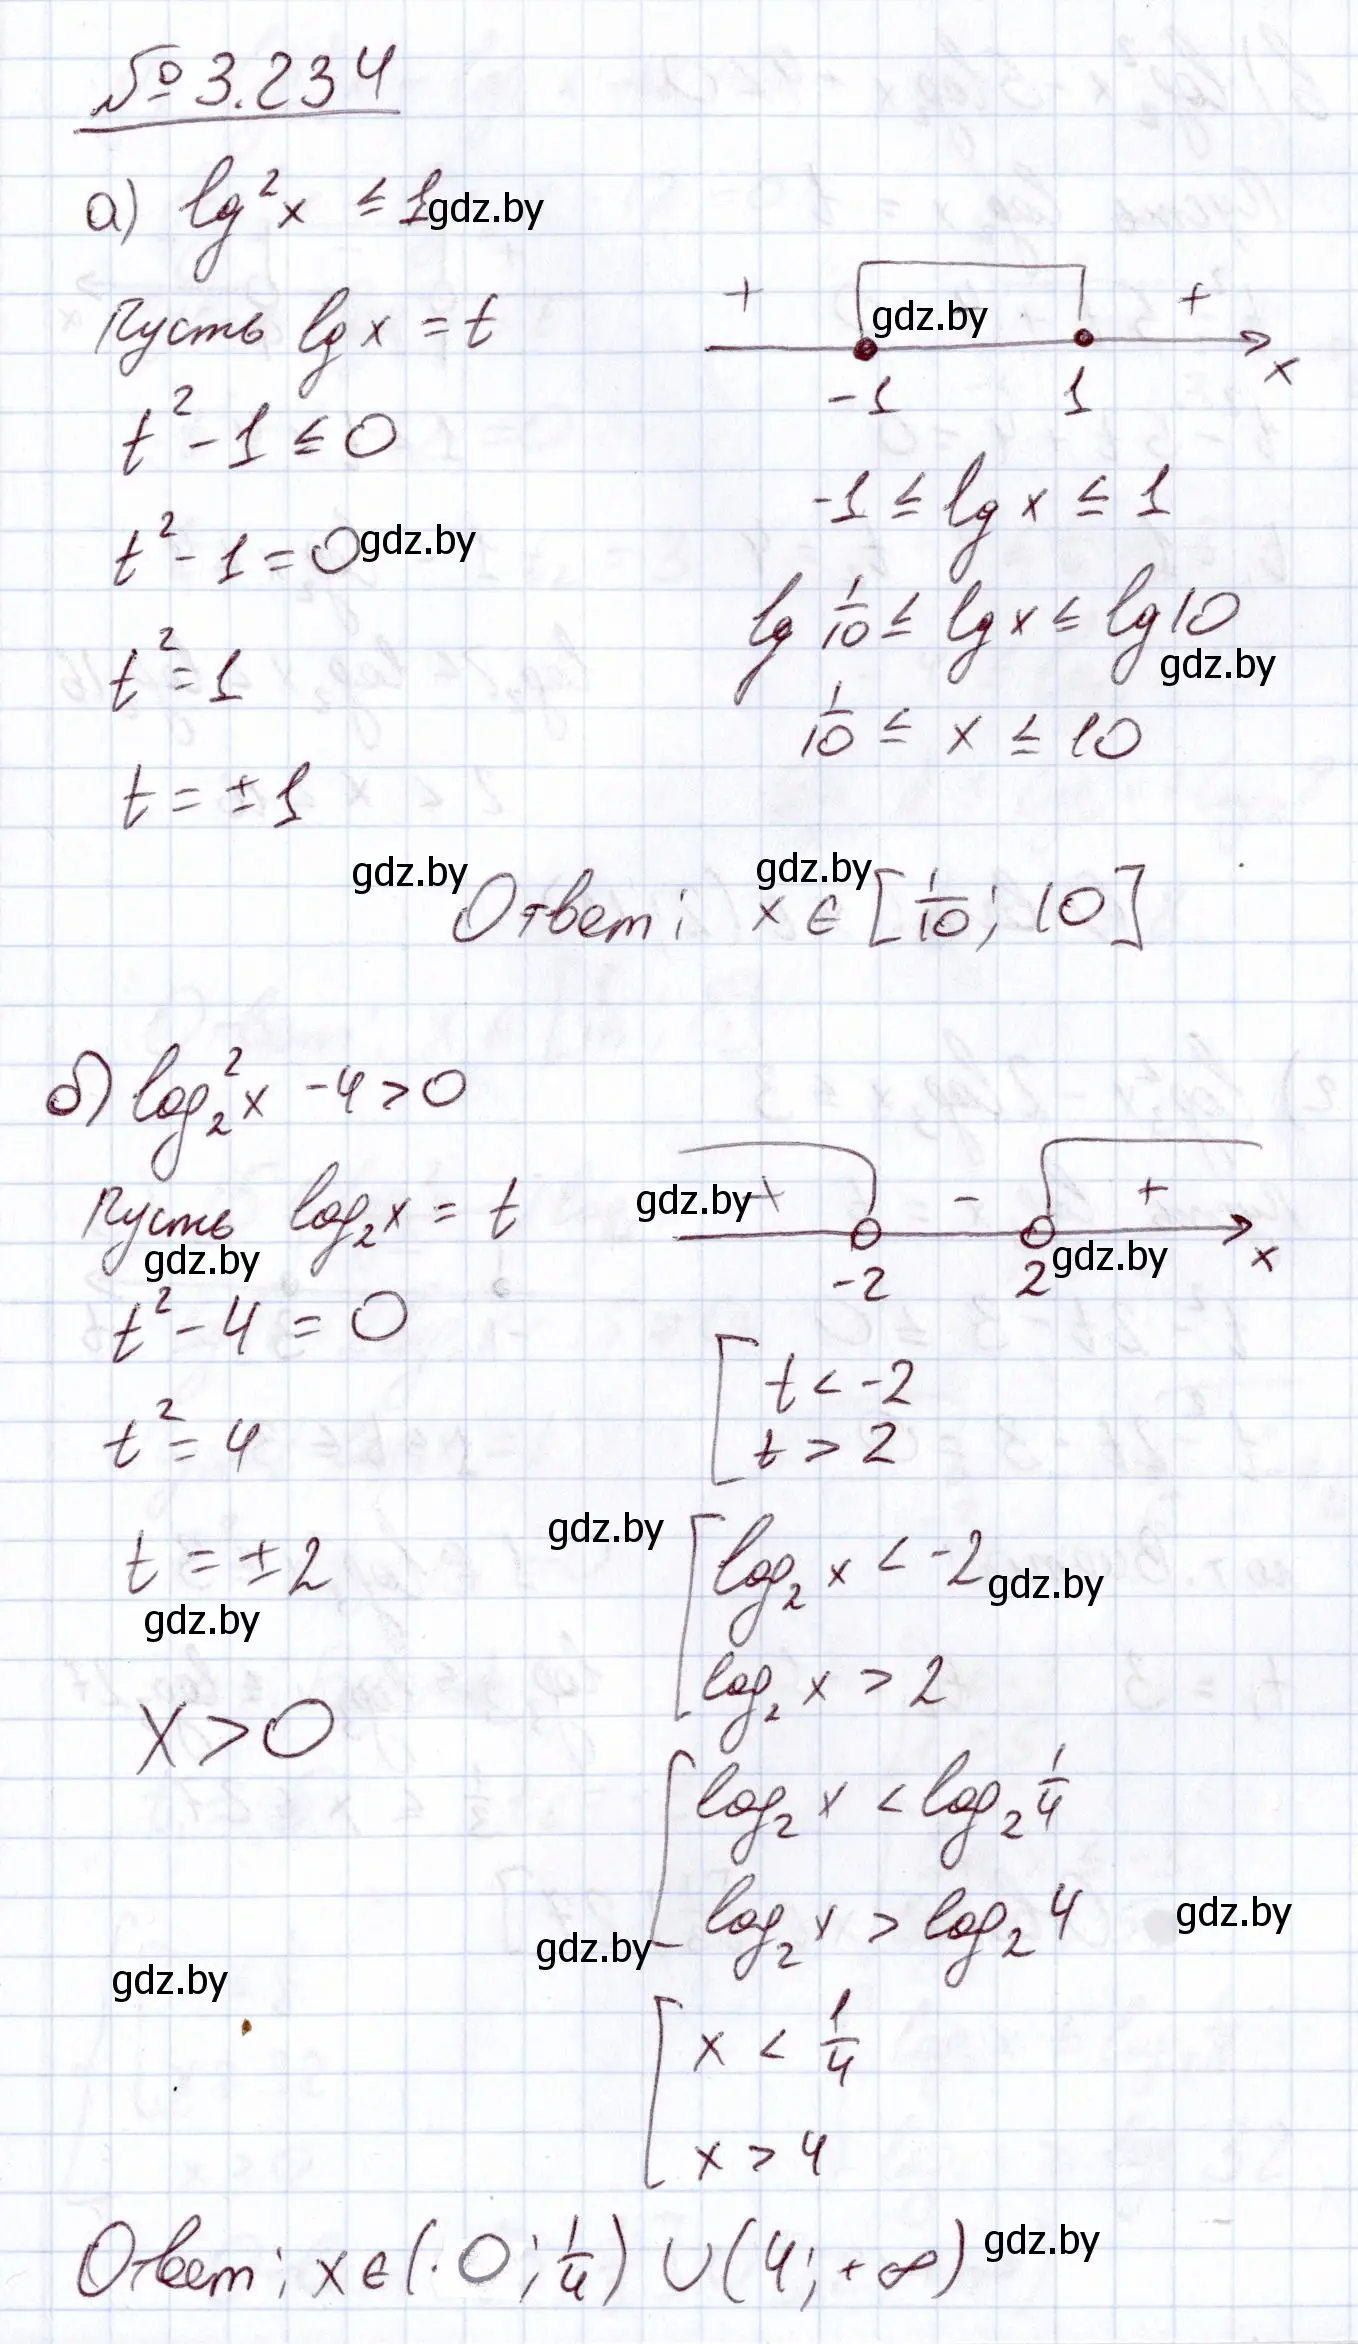 № 3.234
а) lg²x ≤ 1 gdz.by
Пусть lg x = t
t² - 1 ≤ 0
t² - 1 = 0 gdz.by
t² = 1
t = ± 1
gdz.by
+ gdz.by +
-1 1 x
-1 ≤ lg x ≤ 1
lg 1/10 ≤ lg x ≤ lg 10
gdz.by
1/10 ≤ x ≤ 10
gdz.by
Ответ: x ∈ [1/10; 10]
б) log₂²x - 4 > 0
Пусть log₂x = t
gdz.by
t² - 4 = 0
t² = 4
t = ± 2
gdz.by
x > 0
gdz.by
gdz.by + - +
-2 2 gdz.by x
[ t < -2
t > 2
gdz.by
[ log₂ x < -2 gdz.by
log₂ x > 2
[ log₂ x < log₂ 1/4
log₂ x > log₂ 4 gdz.by
gdz.by
[ x < 1/4
x > 4
Ответ: x ∈ (0; 1/4) ∪ (4; +∞) gdz.by